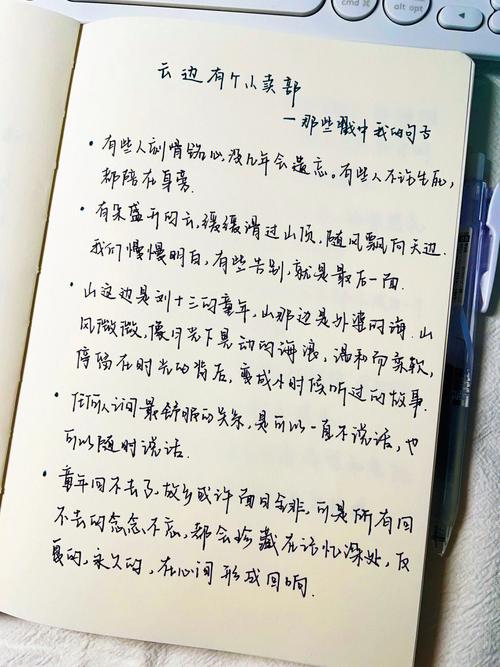 cmd ⌘
opt alt
云边有个小卖部
—那些戳中我的句子
• 有些人刻骨铭心,没几年会遗忘。有些人不论生死,
都陪在身旁.
• 有朵盛开的云,缓缓滑过山顶,随风飘向天边.
我们慢慢明白,有些告别,就是最后一面.
• 山这边是刘十三的童年,山那边是外婆的海.山
风微微,像月光下晃动的海浪,温和而柔软,
停留在时光的背后,变成小时候听过的故事.
• 任何人间最舒服的关系,是可以一直不说话,也
可以随时说话.
• 童年回不去了.故乡或许面目全非,可是所有回
不去的念念不忘,都会珍藏在记忆深处,反
复的,永久的,在心间形成回响.